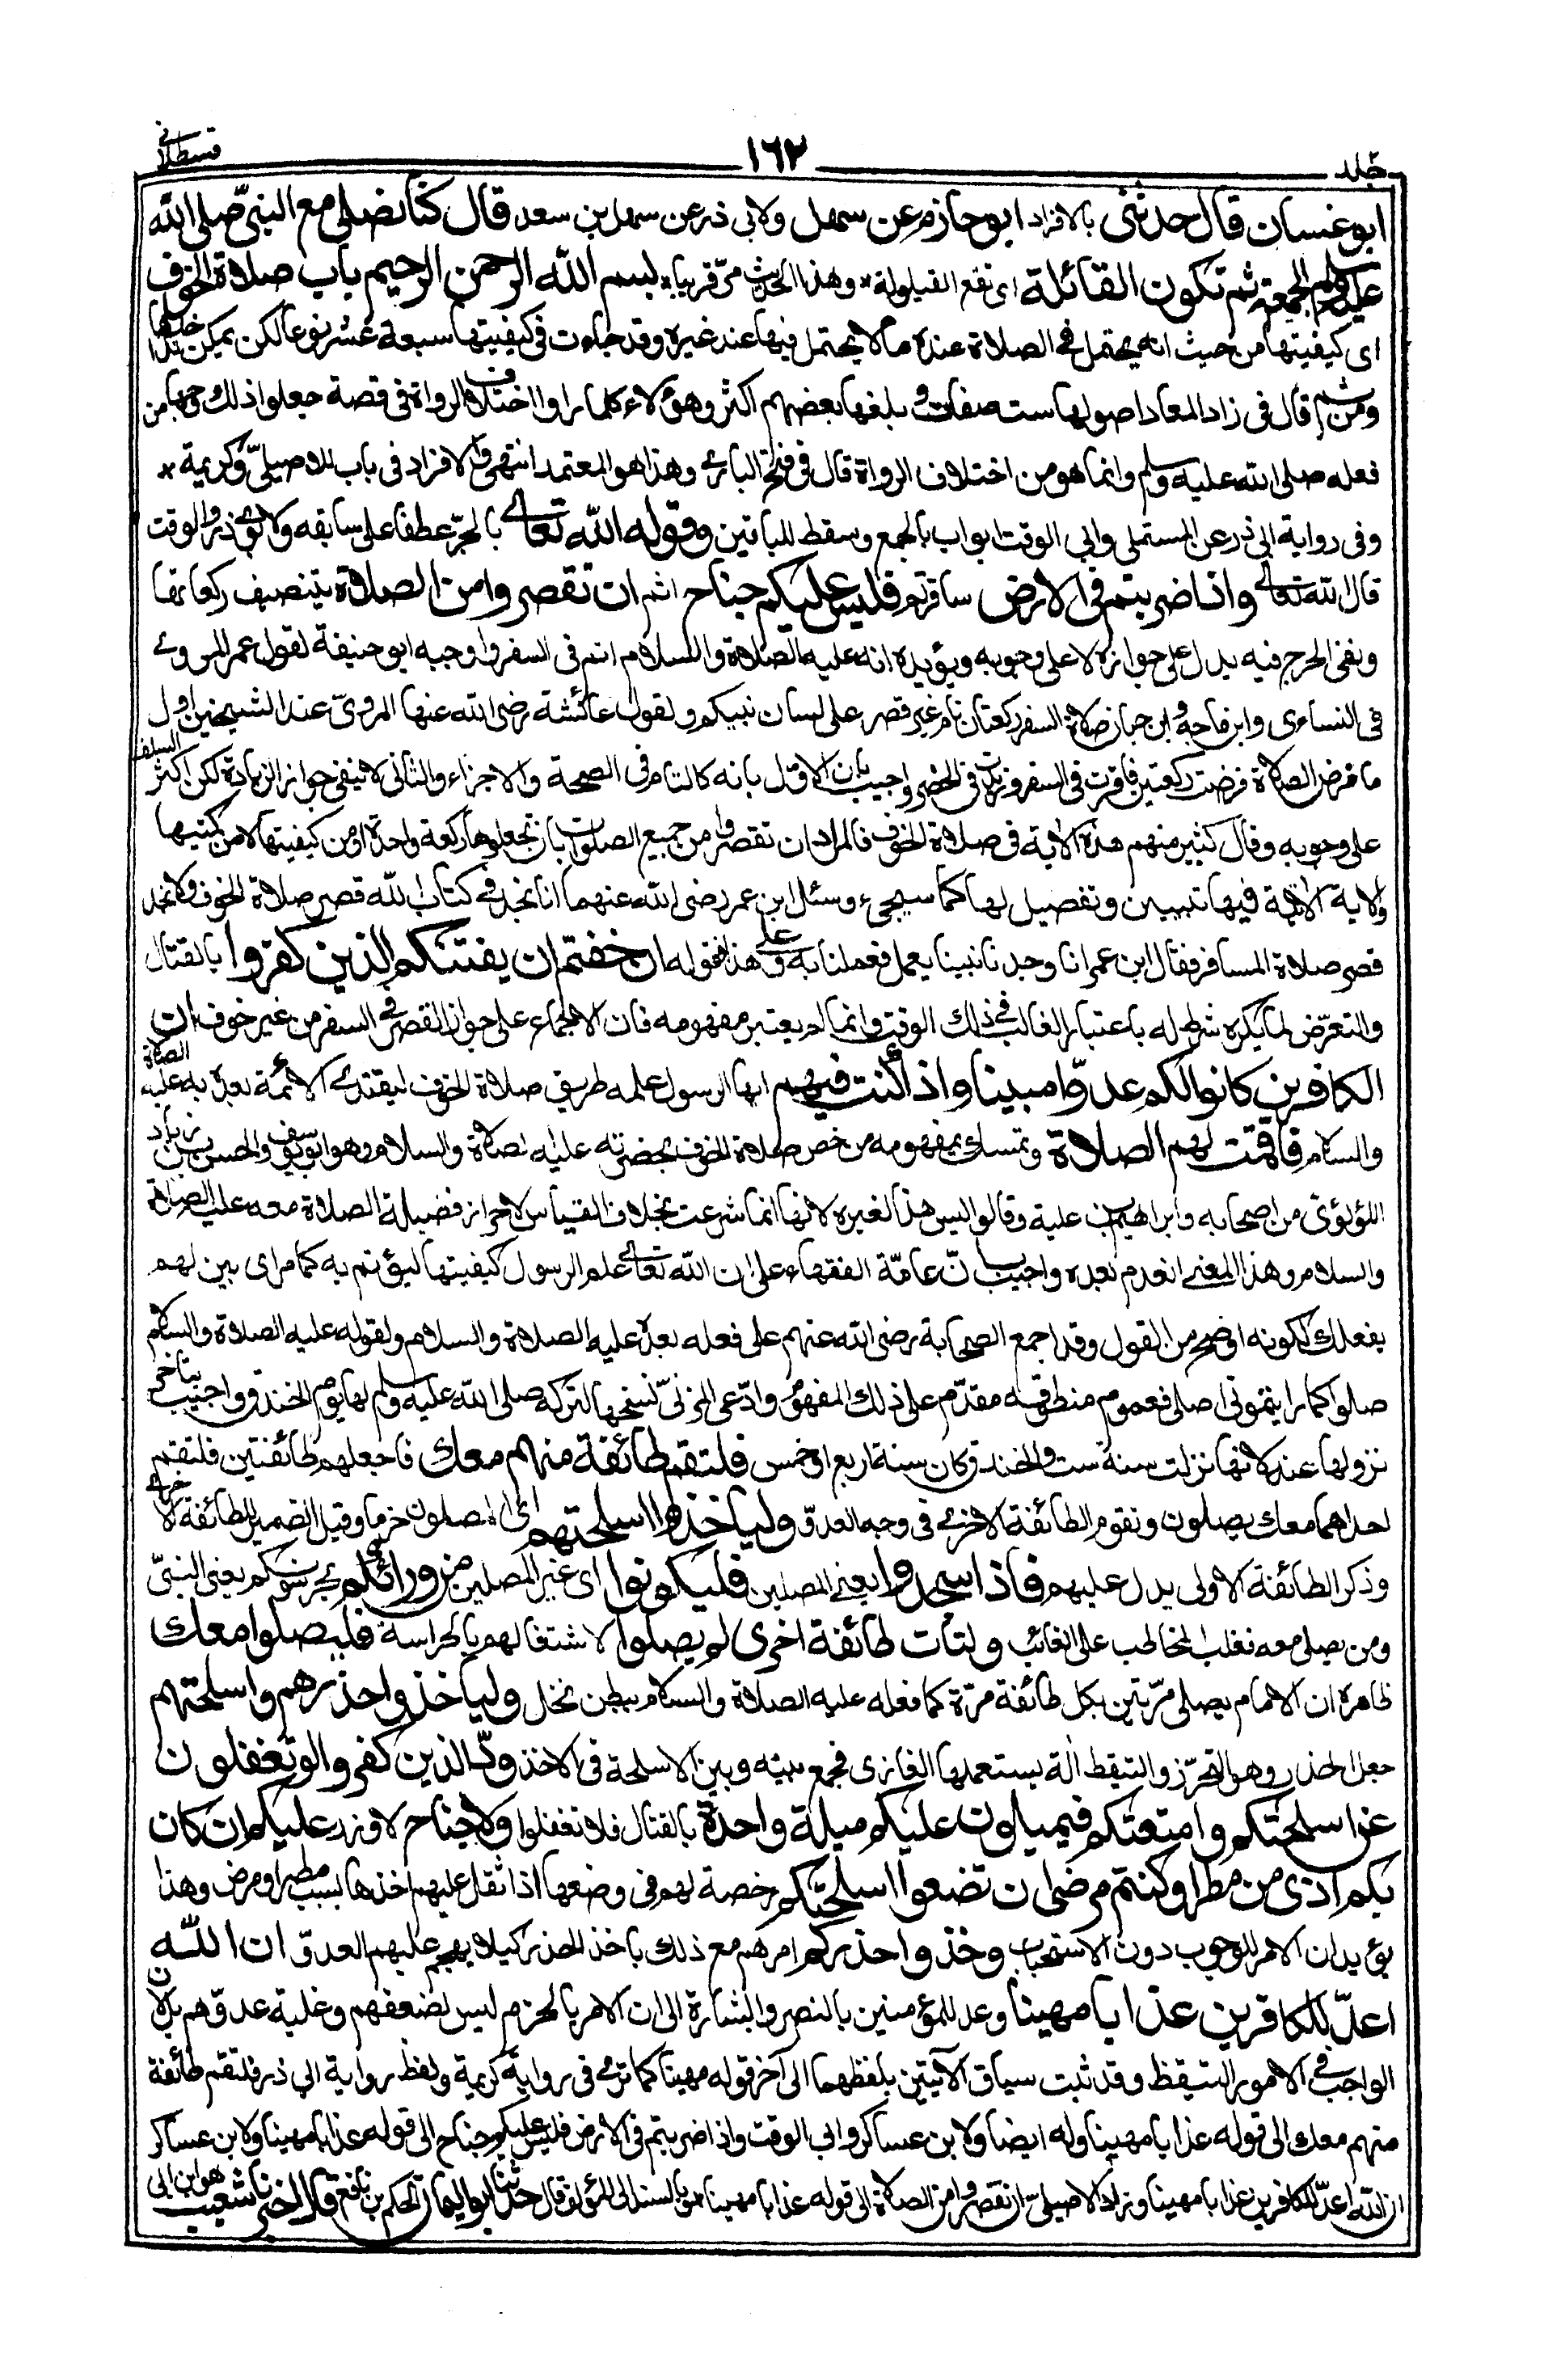 جلد
١٦٢
قسطلاني
ابو غسان قال حدثنى بالافراد ابو حازم عن سهل ولابى ذر عن سهل بن سعد قال كنا نصلى مع النبى صلى الله
عليه وسلم الجمعة ثم تكون القائلة اى تقع القيلولة * وهذا الحديث مرّ قريبا * بسم الله الرحمن الرحيم باب صلاة الخوف
اى كيفيتها من حيث انه يحتمل فى الصلاة عنده ما لا يحتمل فيها عند غيره وقد جاءت فى كيفيتها سبعة عشر نوعا لكن يمكن تداخلها
ومن ثم قال فى زاد المعاد اصولها ست صفات وبلغها بعضهم اكثر وهؤلاء كلما راوا اختلاف الرواة فى قصة جعلوا ذلك وجها من
فعله صلى الله عليه وسلم وانما هو من اختلاف الرواة قال فى فتح البارى وهذا هو المعتمد انتهى والافراد فى باب للاصيلىّ وكريمة *
وفى رواية ابى ذر عن المستملى وابى الوقت ابواب بالجمع وسقط للباقين وقوله الله تعالى بالجرّ عطفا على سابقه ولابوى ذر والوقت
قال الله تعالى واذا ضربتم فى الارض سافرتم فليس عليكم جناح اثم ان تقصروا من الصلاة بتنصيف ركعاتها
ونفى الحرج فيه يدل على جوازه لا على وجوبه ويؤيده انه عليه الصلاة والسلام اتم فى السفر واوجبه ابو حنيفة لقول عمر المروى
فى النساءى وابن ماجه وابن حبان صلاة السفر ركعتان تام غير قصر على لسان نبيكم ولقول عائشة رضى الله عنها المروىّ عند الشيخين اول
ما فرض الصلاة فرضت ركعتين فاقرت فى السفر وزيدت فى الحضر واجيب بان الاوّل بانه كالتام فى الصحة والاجزاء والثانى لا ينفى جواز الزيادة لكن اكثر السلف
على وجوبه وقال كثير منهم هذه الاية فى صلاة الخوف فالمراد ان تقصروا من جميع الصلوات بان تجعلوها ركعة واحدة او من كيفيتها لا من كميتها
ولاية الاتية فيها تبيين وتفصيل لها كما سيجىء وسئل ابن عمر رضى الله عنهما انا نجد فى كتاب الله قصر صلاة الخوف ولا نجد
قصر صلاة المسافر فقال ابن عمر انا وجدنا نبينا يعمل فعملنا به وعلى هذا فقوله ان خفتم ان يفتنكم الذين كفروا بالقتال
والتعرّض لما يكره شرط له باعتبار الغالب فى ذلك الوقت وانما لم يعتبر مفهومه فان الاجماع على جواز القصر فى السفر من غير خوف ان
الكافرين كانوا لكم عدوّا مبينا واذا كنت فيهم ايها الرسول علمه طريق صلاة الخوف ليقتدى الائمة بعده به عليه الصلاة
والسلام فاقمت لهم الصلاة وتمسك بمفهومه من خص صلاة الخوف بحضرته عليه الصلاة والسلام وهو ابو يوسف والحسن بن زياد
اللؤلؤى من اصحابه وابراهيم بن علية وقالوا ليس هذا لغيره لانها انما شرعت بخلاف القياس لاحراز فضيلة الصلاة معه عليه الصلاة
والسلام وهذا المعنى انعدم بعده واجيب بانّ عامّة الفقهاء على ان الله تعالى علم الرسول كيفيتها ليؤتم به كما مر اى بين لهم
بفعلك لكونه اوضح من القول وقد اجمع الصحابة رضى الله عنهم على فعله بعده عليه الصلاة والسلام ولقوله عليه الصلاة والسلام
صلوا كما رايتمونى اصلى فعموم منطوقه مقدّم على ذلك المفهوم وادّعى المزنىّ نسخها لتركه صلى الله عليه وسلم لها يوم الخندق واجيب بتاخر
نزولها عنه لانها نزلت سنة ست والخندق كان سنة اربع او خمس فلتقم طائفة منهم معك فاجعلهم طائفتين فلتقم
احداهما معك يصلون وتقوم الطائفة الاخرى فى وجه العدوّ ولياخذوا اسلحتهم اى المصلون حزما وقيل الضمير للطائفة الاخرى
وذكر الطائفة الاولى يدل عليهم فاذا سجدوا يعنى المصلين فليكونوا اى غير المصلين من ورائكم يحرسونكم يعنى النبىّ
ومن يصلى معه فغلب المخاطب على الغائب ولتأت طائفة اخرى لم يصلوا لاشتغالهم بالحراسة فليصلوا معك
ظاهره ان الامام يصلى مرّتين بكل طائفة مرّة كما فعله عليه الصلاة والسلام ببطن نخل ولياخذوا حذرهم واسلحتهم
جعل الحذر وهو التحرّز والتيقظ الة يستعملها الغازى فجمع بينه وبين الاسلحة فى الاخذ ودّ الذين كفروا لو تغفلون
عن اسلحتكم وامتعتكم فيميلون عليكم ميلة واحدة بالقتال فلا تغفلوا ولا جناح لا وزر عليكم ان كان
بكم اذى من مطر او كنتم مرضى ان تضعوا اسلحتكم رخصة لهم فى وضعها اذا ثقل عليهم اخذها بسبب مطر او مرض وهذا
يؤيد ان الامر للوجوب دون الاستحباب وخذوا حذركم امرهم مع ذلك باخذ الحذر كيلا يهجم عليهم العدوّ ان الله
اعدّ للكافرين عذابا مهينا وعد للمؤمنين بالنصر والبشارة الى ان الامر بالحزم ليس لضعفهم وغلبة عدوّهم بل لان
الواجب فى الامور التيقظ وقد ثبت سياق الآيتين بلفظهما الى آخر قوله مهينا كما ترى فى رواية كريمة ولفظ رواية ابى ذر فلتقم طائفة
منهم معك الى قوله عذابا مهينا وله ايضا ولابن عساكر وابى الوقت واذا ضربتم فى الارض فليس عليكم جناح الى قوله عذابا مهينا ولابن عساكر
ان الله اعدّ للكافرين عذابا مهينا وزاد الاصيلىّ ان تقصروا من الصلاة الى قوله عذابا مهينا وبالسند الى المؤلف قال حدثنا ابو اليمان الحكم بن نافع قال اخبرنا شعيب هو ابن ابى